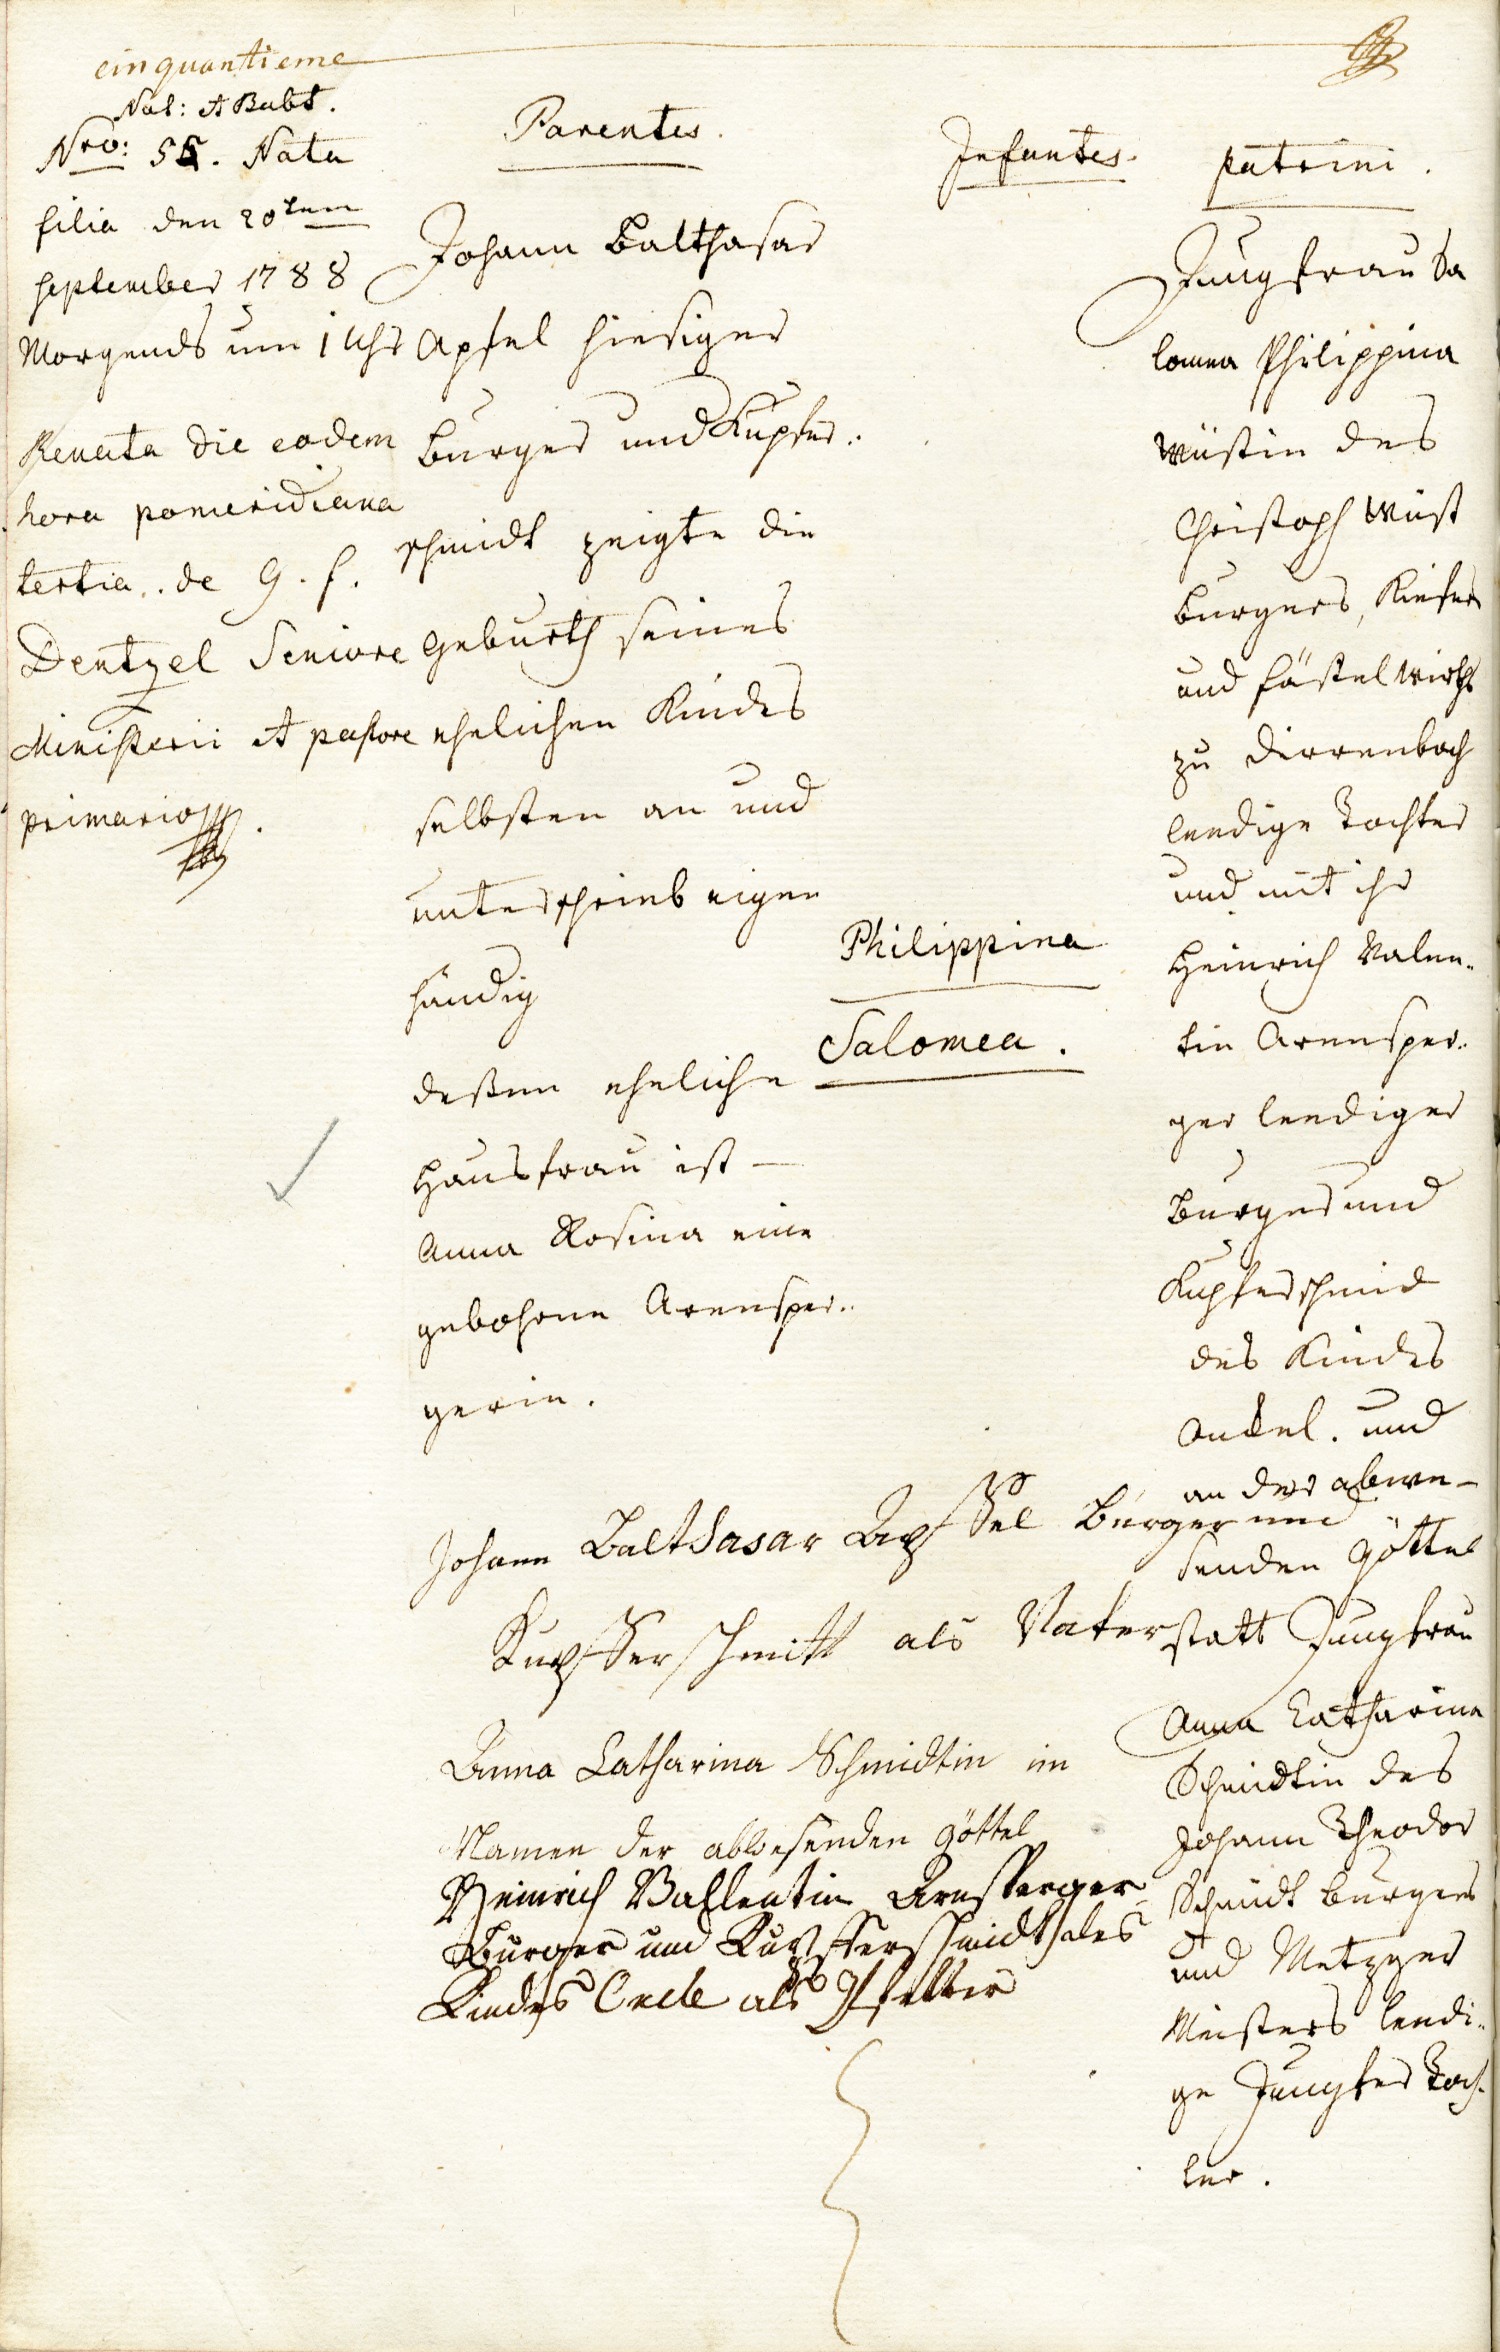 cinquantieme
Nat: et Babt.
Nro: 55. Nata
filia den 20ten
September 1788
Morgends um 1 Uhr
Renata die eodem
hora pomeridiana
tertia. de G. f.
Dentzel Seniore
Ministerii et pastore
primario
Parentes.
Johann Balthasar
Apfel hiesiger
Burger und Kupfer..
schmidt zeigte die
Geburth seines
ehelichen Kindes
selbsten an und
unterschrieb eigen
händig
deßen eheliche
Hausfrau ist —
Anna Rosina eine
gebohrne Arensper..
gerin.
Infantes.
Philippina
Salomea.
patrini.
Jungfrau Sa
lomea Philippina
Wüstin des
Christoph Wüst
Burgers, Kiefers
und Fästelwirths
zu Dierrenbach
leedige Tochter
und mit ihr
Heinrich Valen..
tin Arensper..
ger leediger
Burger und
Kupferschmid
des Kindes
Onckel. und
an der abwe-
senden Göttel
statt Jungfrau
Anna Catharina
Schmidtin des
Johann Theodor
Schmidt Burgers
und Metzger
Meisters leedi..
ge Jungfer Toch-
ter.
Johann Balthasar Apffel Burger und
Kupfferschmitt als Vater
Anna Catharina Schmidtin im
Namen der abwesenden Göttel
Heinrich Vallentin Arnsperger
Burger und Kupfferschmidt des
Kindes Oncle als Pfetter